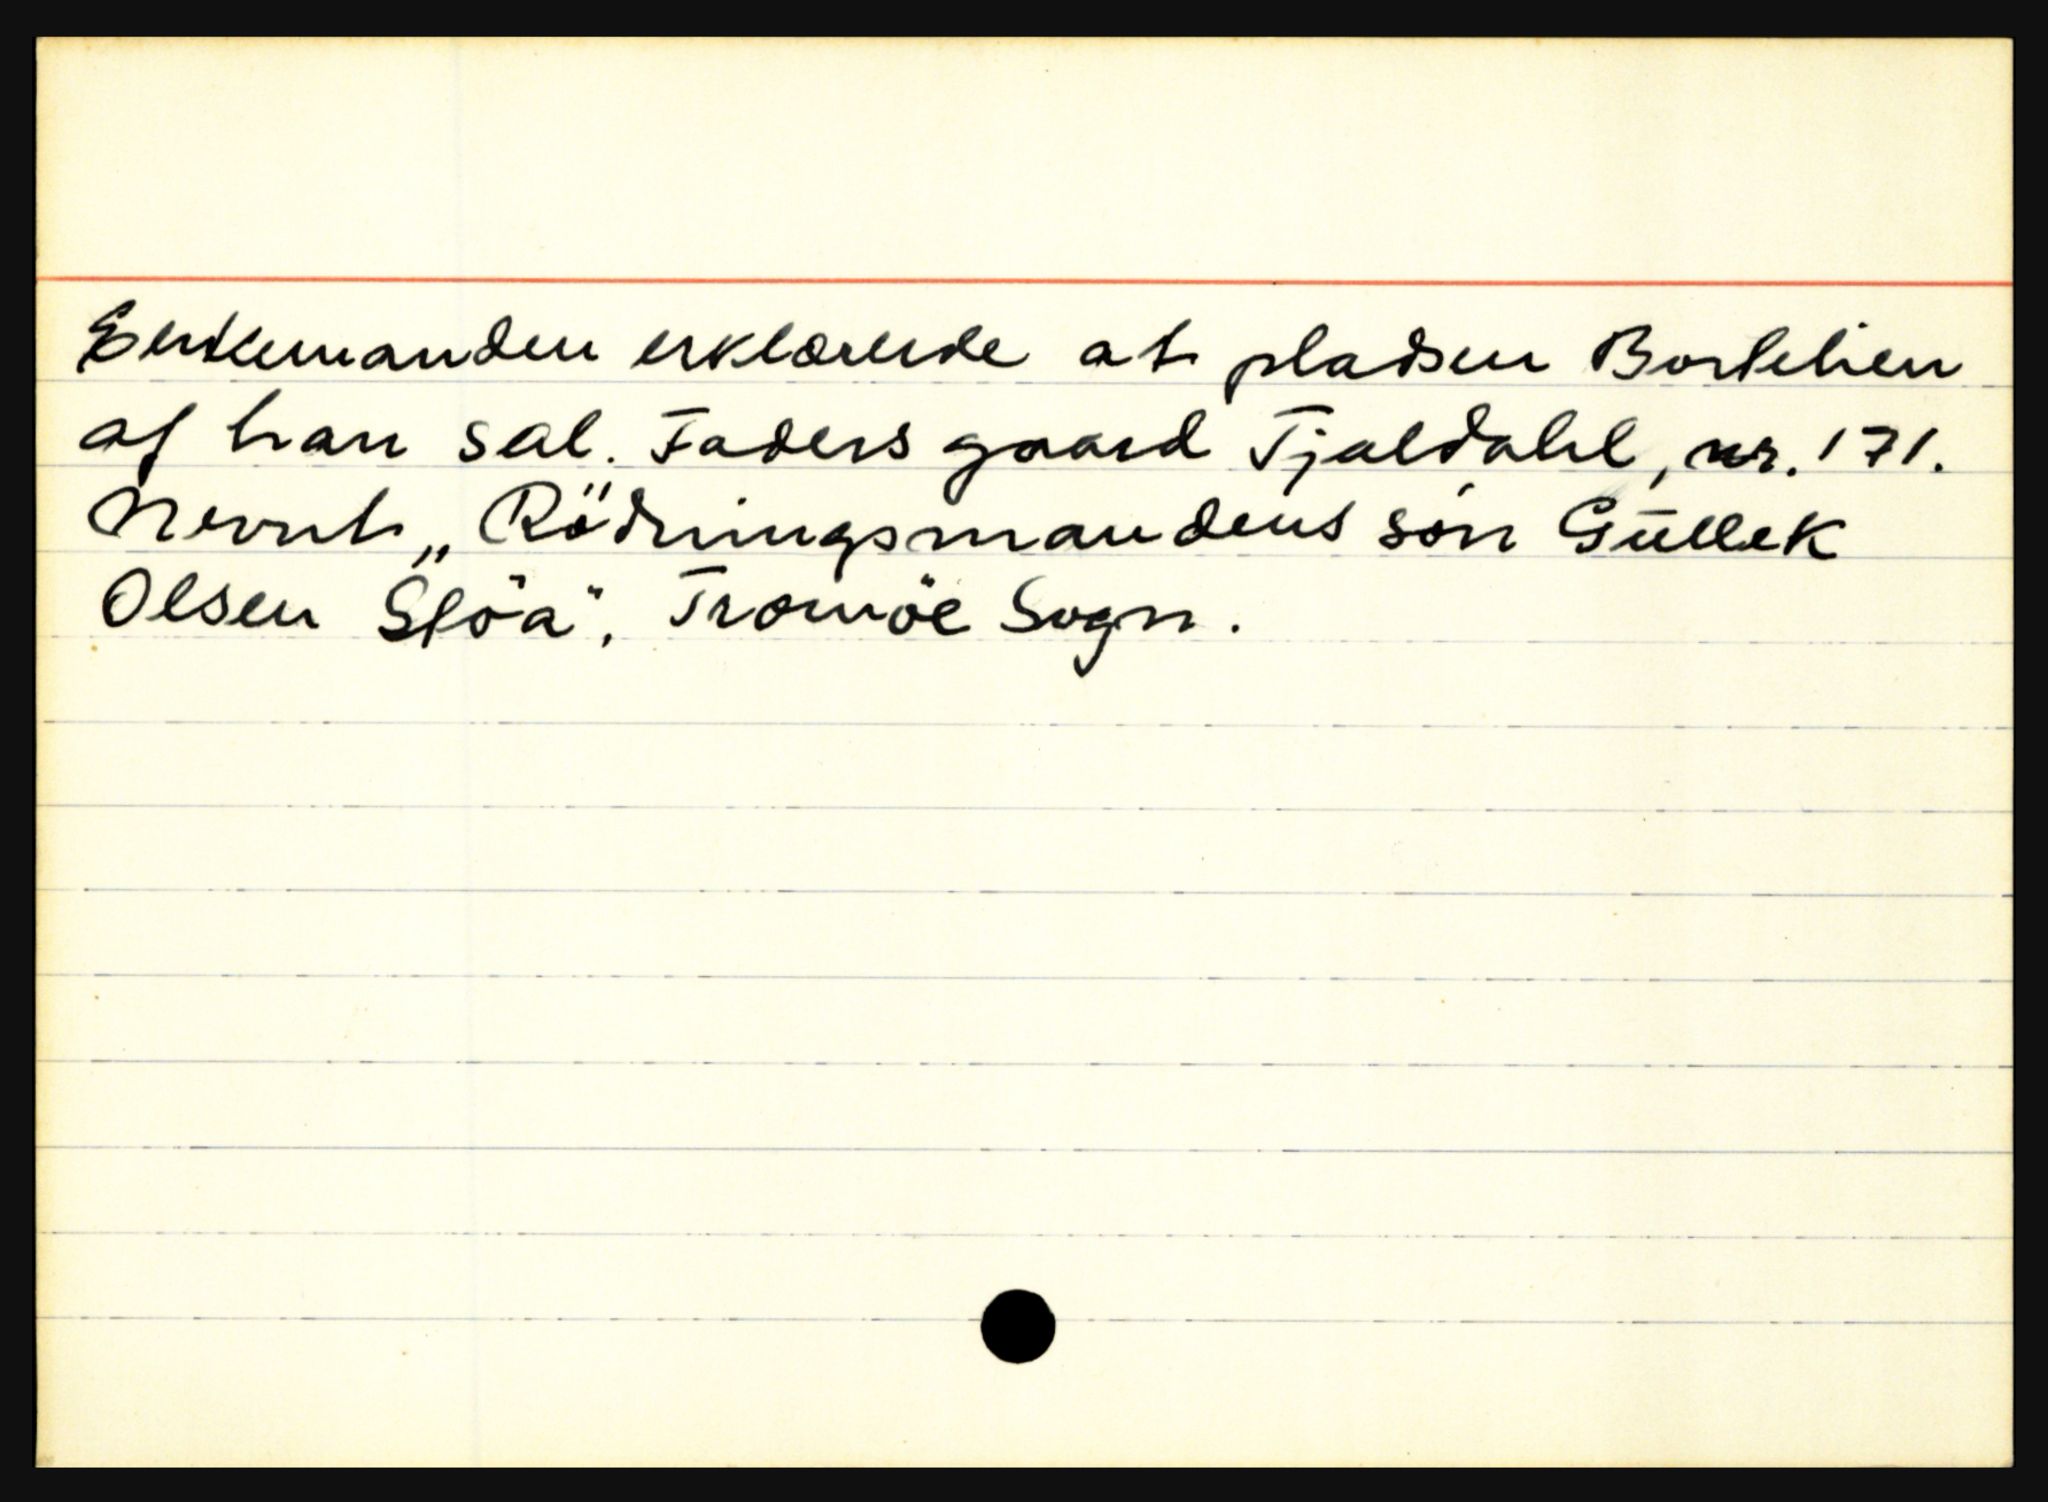 Enkemanden erklærede at pladsen Bortelien
af han sal. Faders gaard Tjaldahl, nr. 171.
Nevnt „Rödningsmandens sön Gullek
Olsen Slöa", Tromöe Sogn.